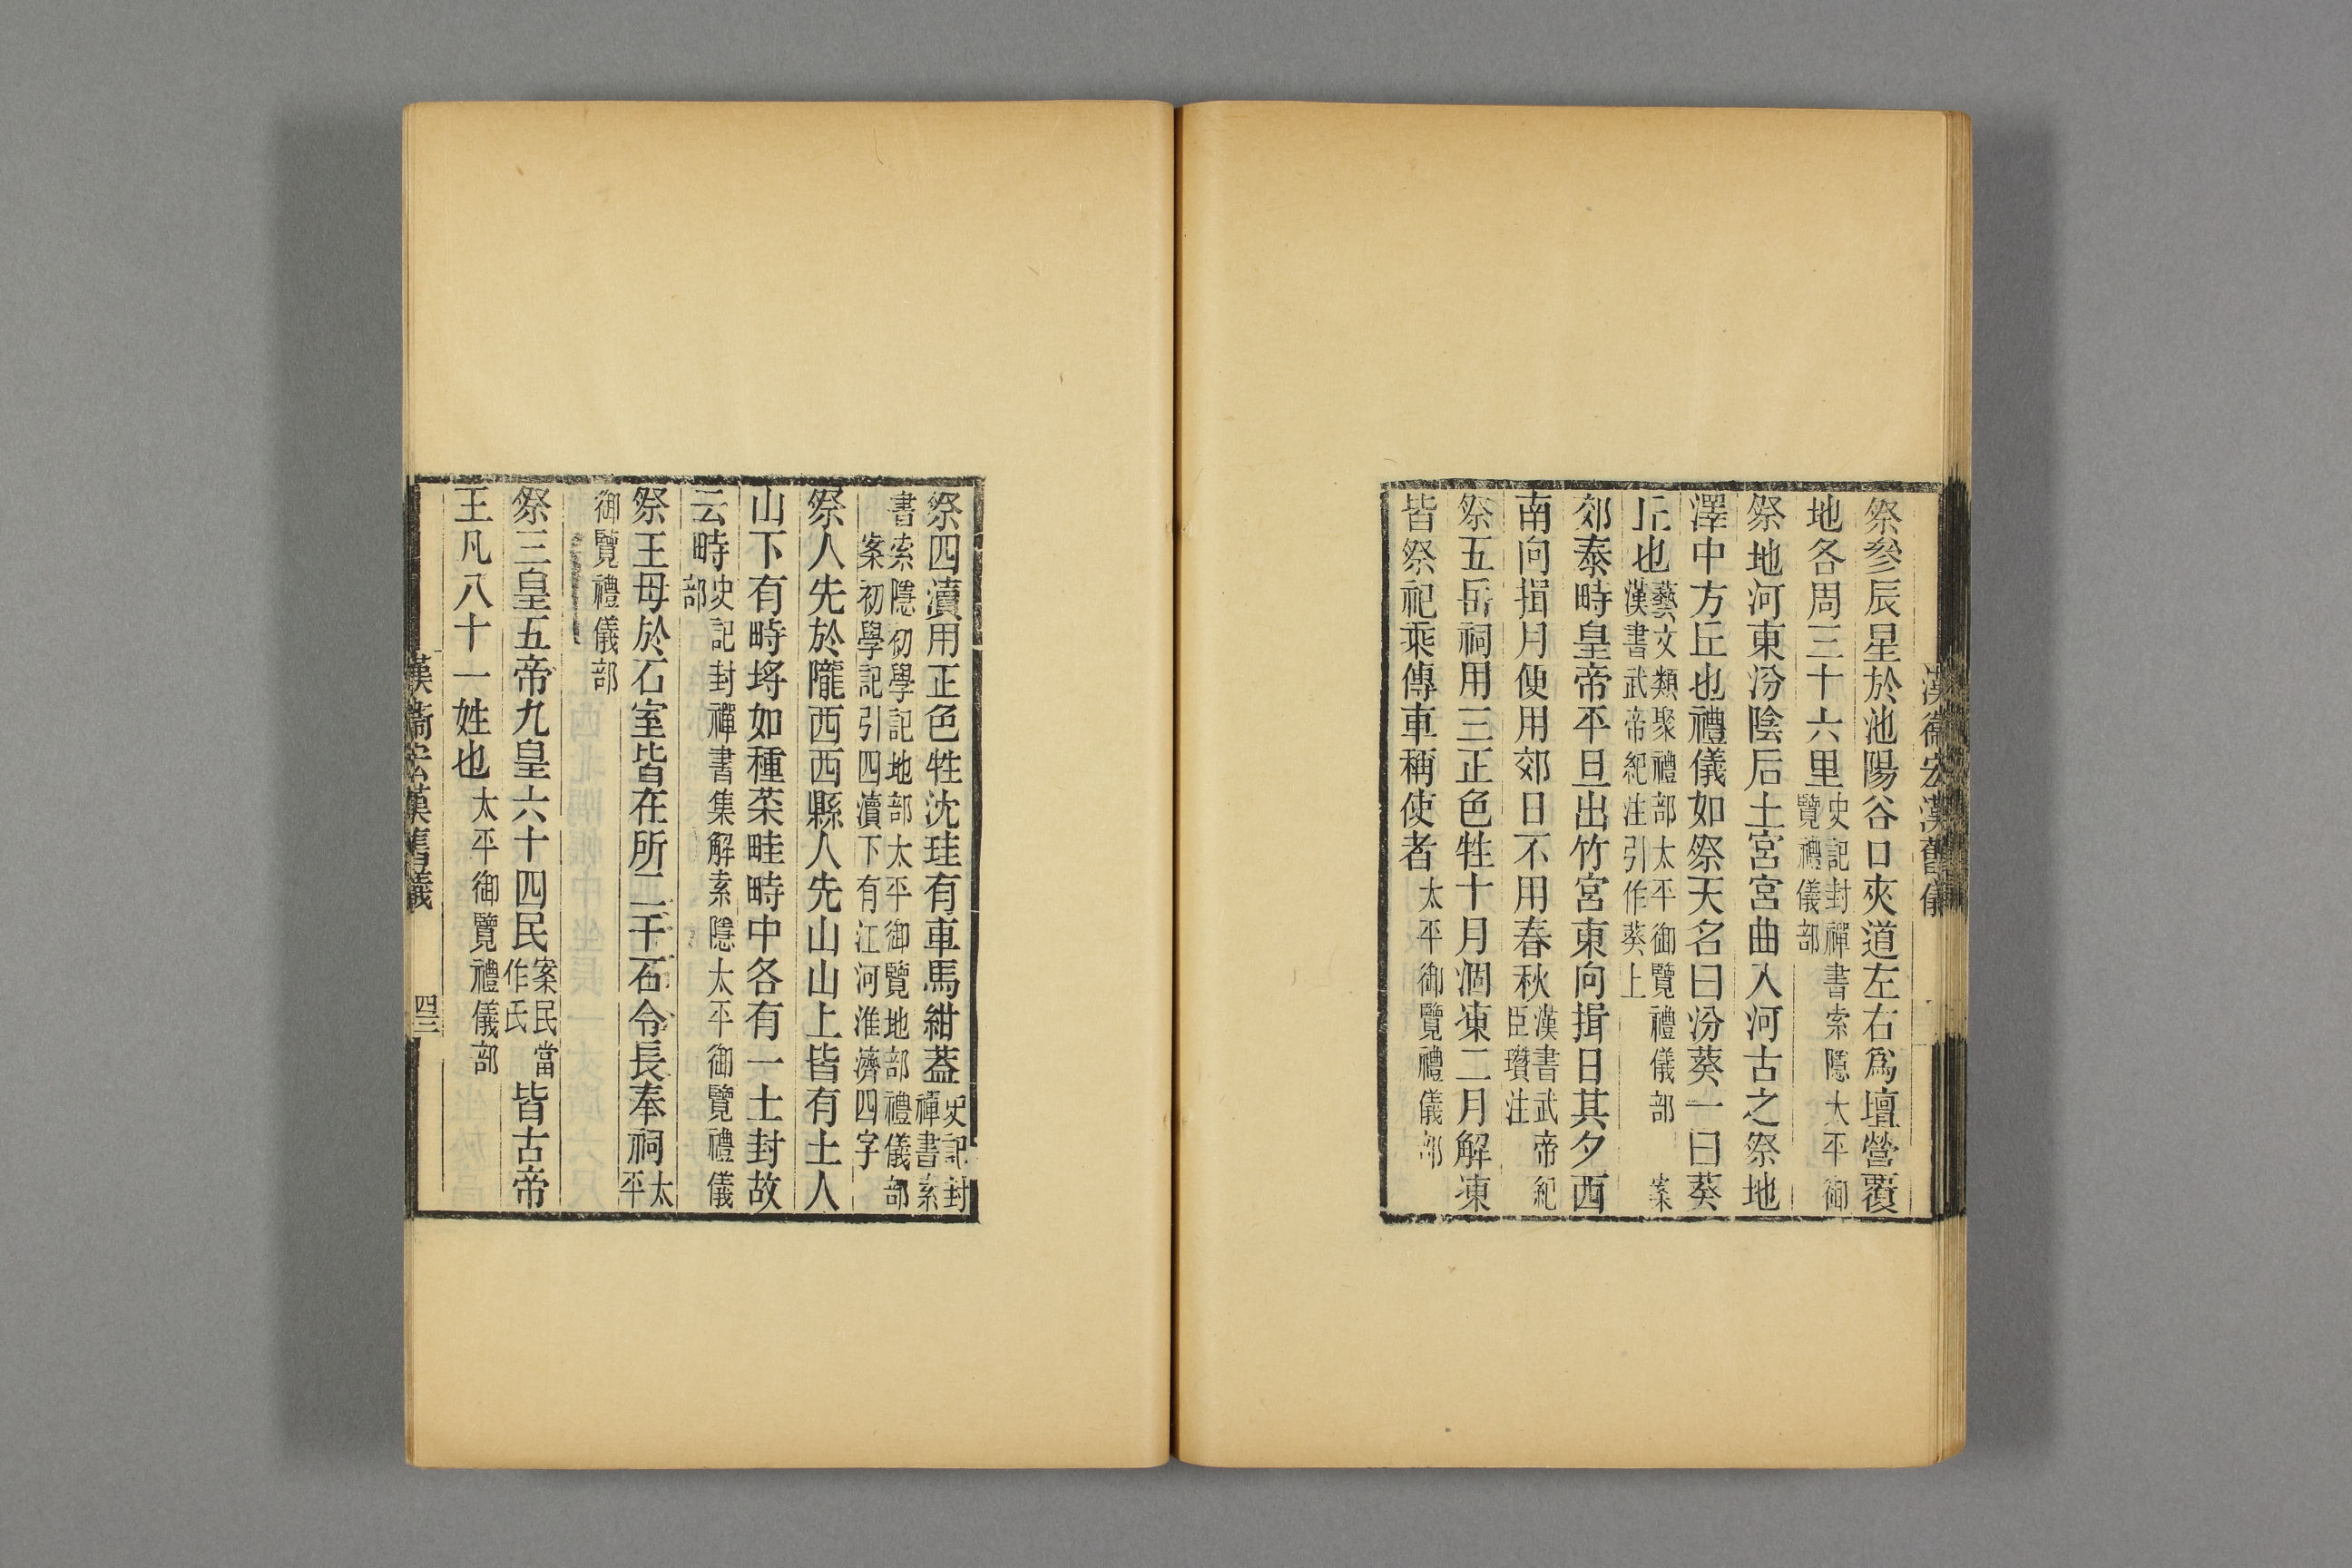 漢衞宏漢舊儀
祭參辰星於池陽谷口夾道左右爲壇營覆
地各周三十六里史記封禪書索隱太平御覽禮儀部
祭地河東汾陰后土宮宮曲入河古之祭地
澤中方丘也禮儀如祭天名曰汾葵一曰葵
丘也藝文類聚禮部太平御覽禮儀部 案漢書武帝紀注引作葵上
郊泰畤皇帝平旦出竹宮東向揖日其夕西
南向揖月便用郊日不用春秋漢書武帝紀臣瓚注
祭五岳祠用三正色牲十月涸凍二月解凍
皆祭祀乘傳車稱使者太平御覽禮儀部
祭四瀆用正色牲沈珪有車馬紺蓋史記封禪書索
書索隱初學記地部太平御覽地部禮儀部 案初學記引四瀆下有江河淮濟四字
祭人先於隴西西縣人先山山上皆有土人
山下有畤埒如種菜畦畤中各有一土封故
云畤史記封禪書集解索隱太平御覽禮儀部
祭王母於石室皆在所二千石令長奉祠太平
御覽禮儀部
祭三皇五帝九皇六十四民案民當作氏皆古帝
王凡八十一姓也太平御覽禮儀部
漢衞宏漢舊儀 四三